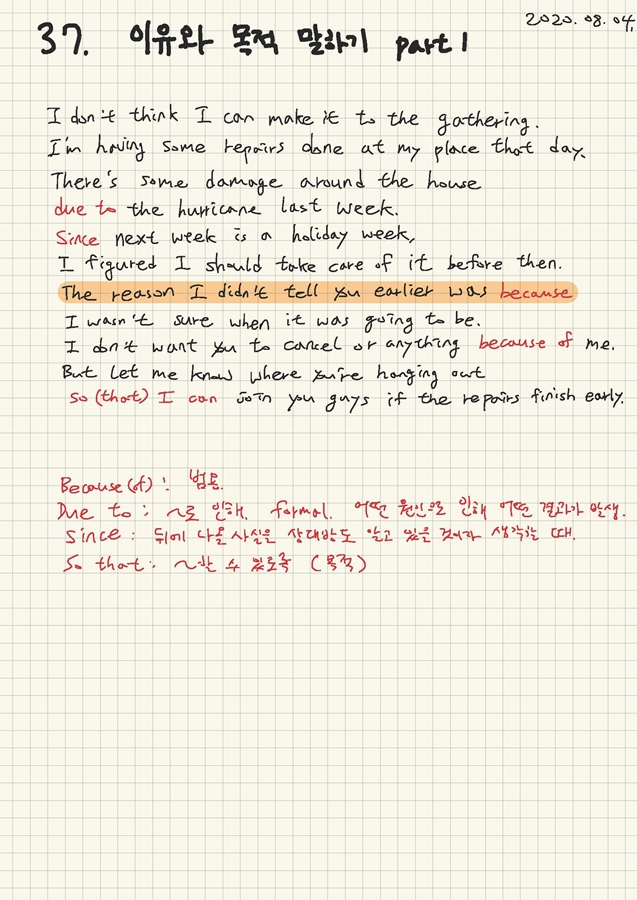 2020. 08. 04.
37. 이유와 목적 말하기 part 1
I don't think I can make it to the gathering.
I'm having some repairs done at my place that day.
There's some damage around the house
due to the hurricane last week.
Since next week is a holiday week,
I figured I should take care of it before then.
The reason I didn't tell you earlier was because
I wasn't sure when it was going to be.
I don't want you to cancel or anything because of me.
But let me know where you're hanging out
so (that) I can join you guys if the repairs finish early.
Because (of) : 범용.
Due to : ~로 인해. formal. 어떤 원인으로 인해 어떤 결과가 발생.
Since : 뒤에 나올 사실은 상대방도 알고 있을 것이라 생각할 때.
So that : ~할 수 있도록 (목적)